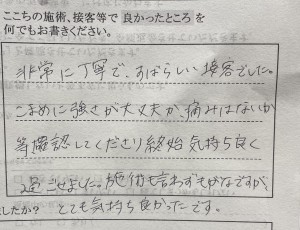 ここちの施術、接客等で 良かったところ を
何でもお書きください。
非常に丁寧で、すばらしい接客でした。
こまめに強さが大丈夫か、痛みはないか
等確認してくださり終始気持ち良く
過ごせました。施術も言わずもがなですが、
したか? とても気持ち良かったです。